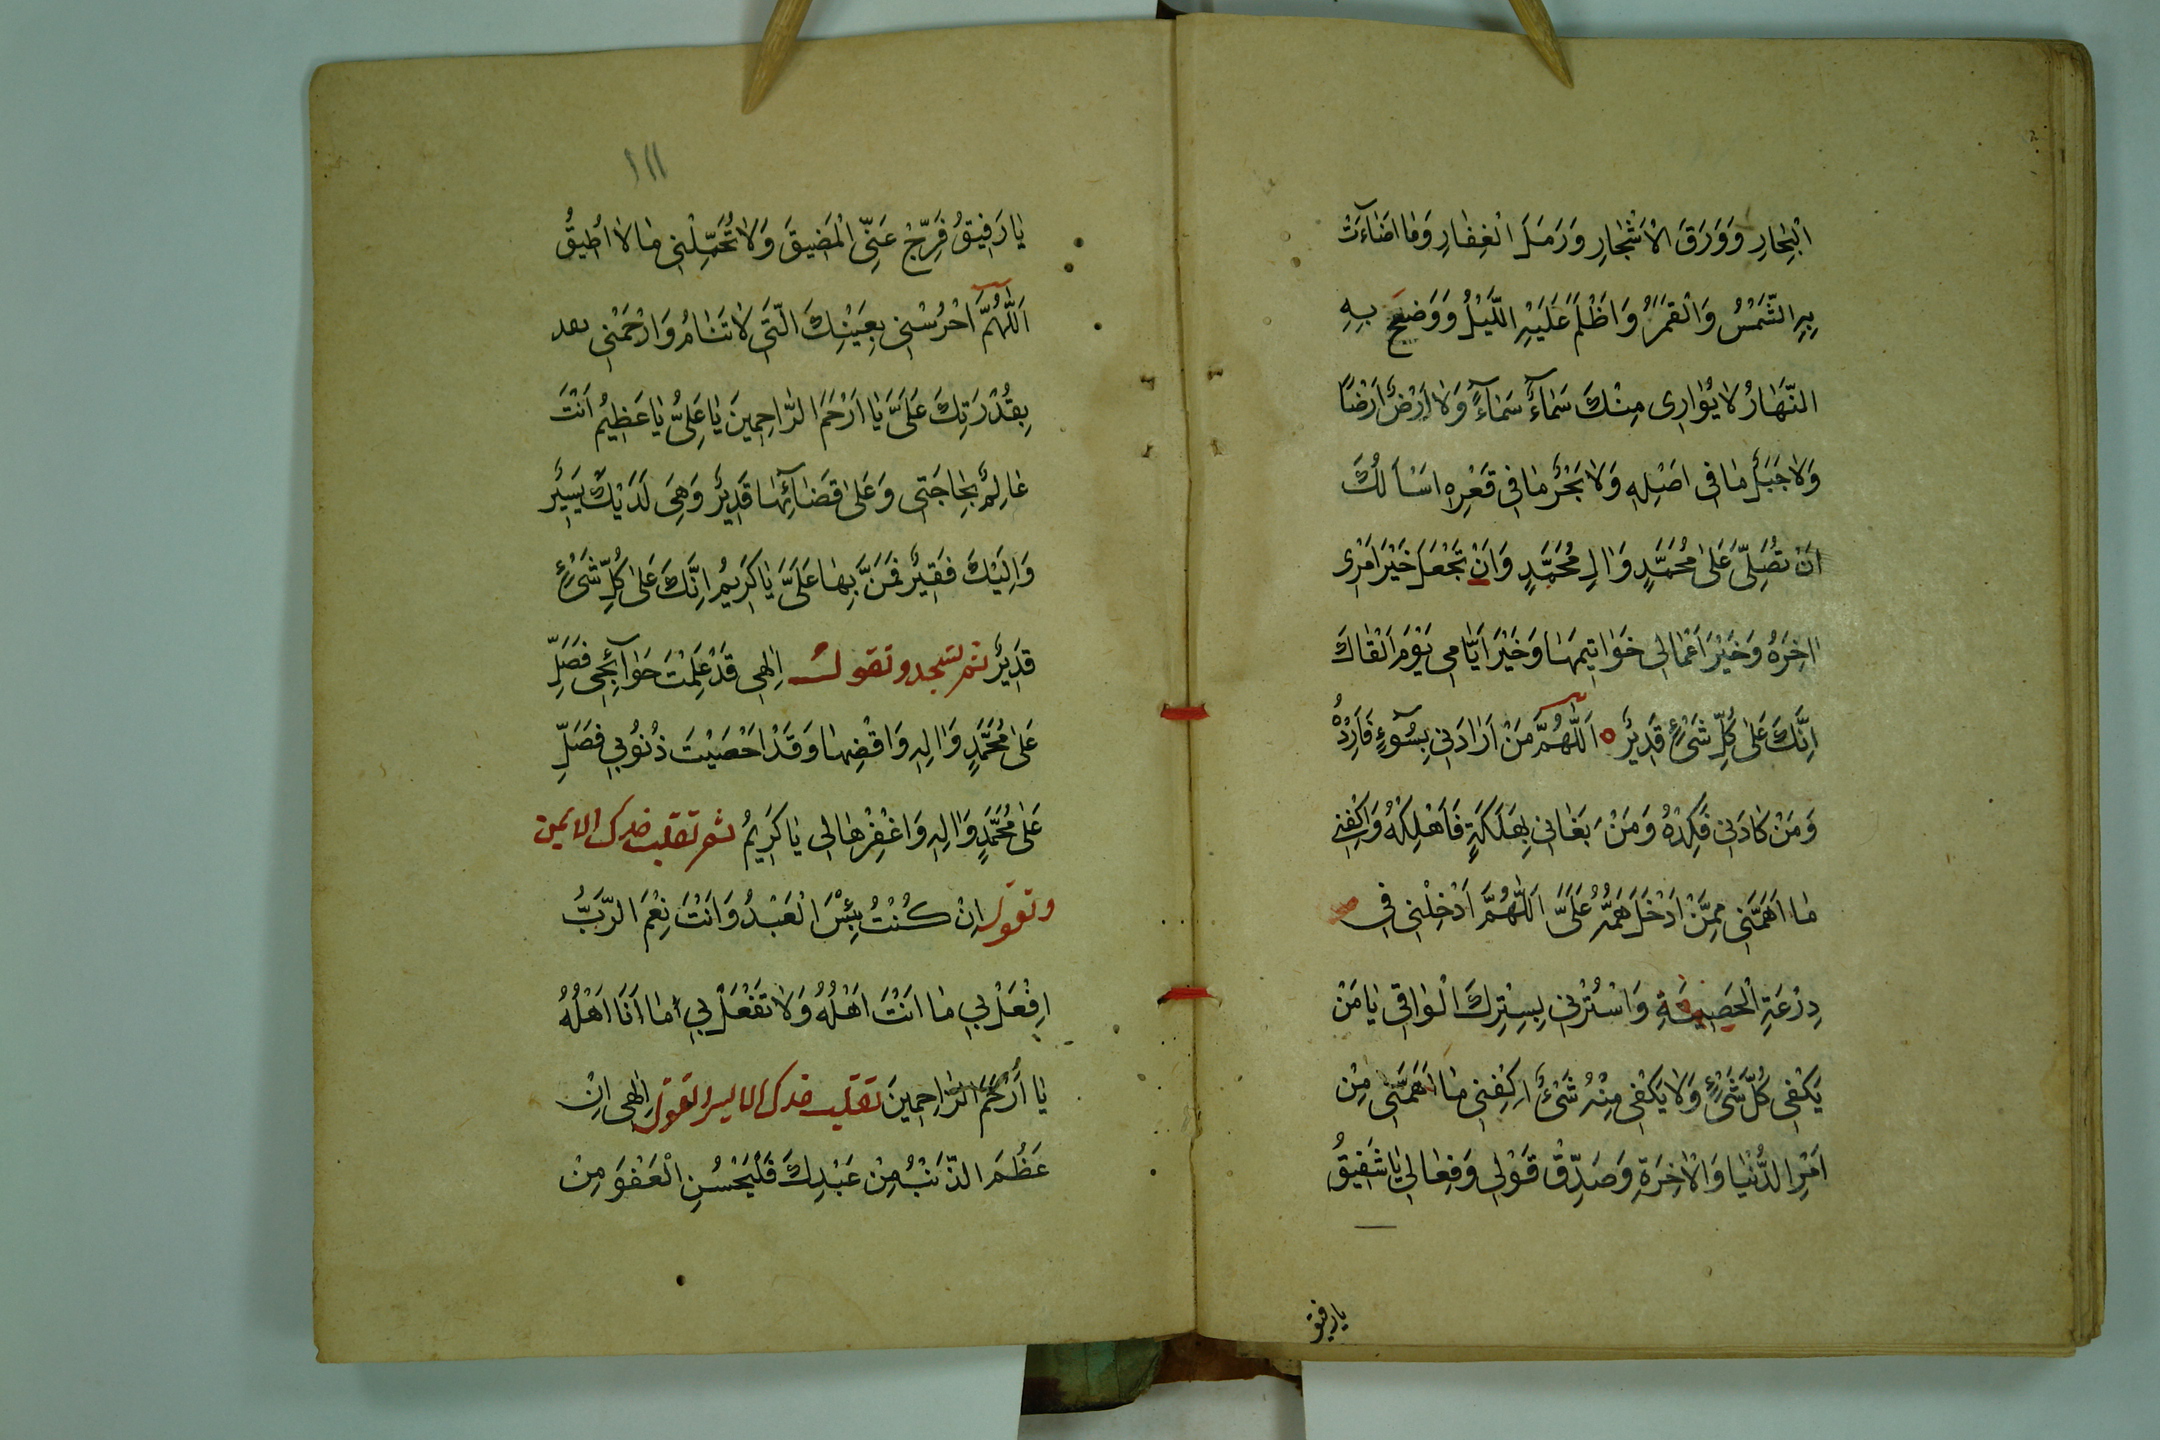 الْبِحَارِ وَوَرَقَ الْاَشْجَارِ وَرَمَلَ الْغِفَارِ وَمَا اَضَاءَتْ
بِهِ الشَّمْسُ وَالْقَمَرُ وَاَظْلَمَ عَلَيْهِ اللَّيْلُ وَوَضَحَ بِهِ
النَّهَارُ لَا يُوَارِى مِنْكَ سَمَاءٌ سَمَاءً وَلَا اَرْضٌ اَرْضًا
وَلَا جَبَلٌ مَا فِى اَصْلِهِ وَلَا بَحْرٌ مَا فِى قَعْرِهِ اَسْاَلُكَ
اَنْ تُصَلِّىَ عَلَى مُحَمَّدٍ وَاٰلِ مُحَمَّدٍ وَاَنْ تَجْعَلَ خَيْرَ اَمْرِى
اٰخِرَهُ وَخَيْرَ اَعْمَالِى خَوَاتِيمَهَا وَخَيْرَ اَيَّامِى يَوْمَ اَلْقَاكَ
اِنَّكَ عَلَى كُلِّ شَىْءٍ قَدِيرٌ اَللّٰهُمَّ مَنْ اَرَادَنِى بِسُوءٍ فَاَرِدْهُ
وَمَنْ كَادَنِى فَكِدْهُ وَمَنْ بَغَانِى بِهَلَكَةٍ فَاَهْلِكْهُ وَاكْفِنِى
مَا اَهَمَّنِى مِمَّنْ اَدْخَلَ هَمَّهُ عَلَىَّ اَللّٰهُمَّ اَدْخِلْنِى فِى
دِرْعَةِ الْحَصِينَةِ وَاسْتُرْنِى بِسِتْرِكَ الْوَاقِى يَا مَنْ
يَكْفِى كُلَّ شَىْءٍ وَلَا يَكْفِى مِنْهُ شَىْءٌ اِكْفِنِى مَا اَهَمَّنِى مِنْ
اَمْرِ الدُّنْيَا وَالْاٰخِرَةِ وَصَدِّقْ قَوْلِى وَفِعَالِى يَا شَفِيقُ
يا رفيق
١١١
يَا رَفِيقُ فَرِّجْ عَنِّى الْمَضِيقَ وَلَا تُحَمِّلْنِى مَا لَا اُطِيقُ
اَللّٰهُمَّ احْرُسْنِى بِعَيْنِكَ الَّتِى لَا تَنَامُ وَارْحَمْنِى بعد
بِقُدْرَتِكَ عَلَىَّ يَا اَرْحَمَ الرَّاحِمِينَ يَا عَلِىُّ يَا عَظِيمُ اَنْتَ
عَالِمٌ بِحَاجَتِى وَعَلَى قَضَائِهَا قَدِيرٌ وَهِىَ لَدَيْكَ يَسِيرٌ
وَاِلَيْكَ فَقِيرٌ فَمُنَّ بِهَا عَلَىَّ يَا كَرِيمُ اِنَّكَ عَلَى كُلِّ شَىْءٍ
قَدِيرٌ ثم تسجد وتقول اِلٰهِى قَدْ عَلِمْتَ حَوَائِجِى فَصَلِّ
عَلَى مُحَمَّدٍ وَاٰلِهِ وَاقْضِهَا وَقَدْ اَحْصَيْتَ ذُنُوبِى فَصَلِّ
عَلَى مُحَمَّدٍ وَاٰلِهِ وَاغْفِرْهَا لِى يَا كَرِيمُ ثم تقلب خدك الايمن
وتقول اِنْ كُنْتُ بِئْسَ الْعَبْدُ وَاَنْتَ نِعْمَ الرَّبُّ
اِفْعَلْ بِى مَا اَنْتَ اَهْلُهُ وَلَا تَفْعَلْ بِى مَا اَنَا اَهْلُهُ
يَا اَرْحَمَ الرَّاحِمِينَ تقلب خدك الايسر وتقول اِلٰهِى اِنْ
عَظُمَ الذَّنْبُ مِنْ عَبْدِكَ فَلْيَحْسُنِ الْعَفْوَ مِنْ